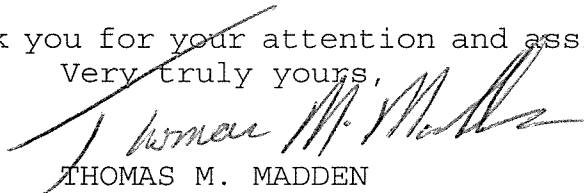 k you for your attention and ass
Very truly yours,
Thomas M. Madden
THOMAS M. MADDEN